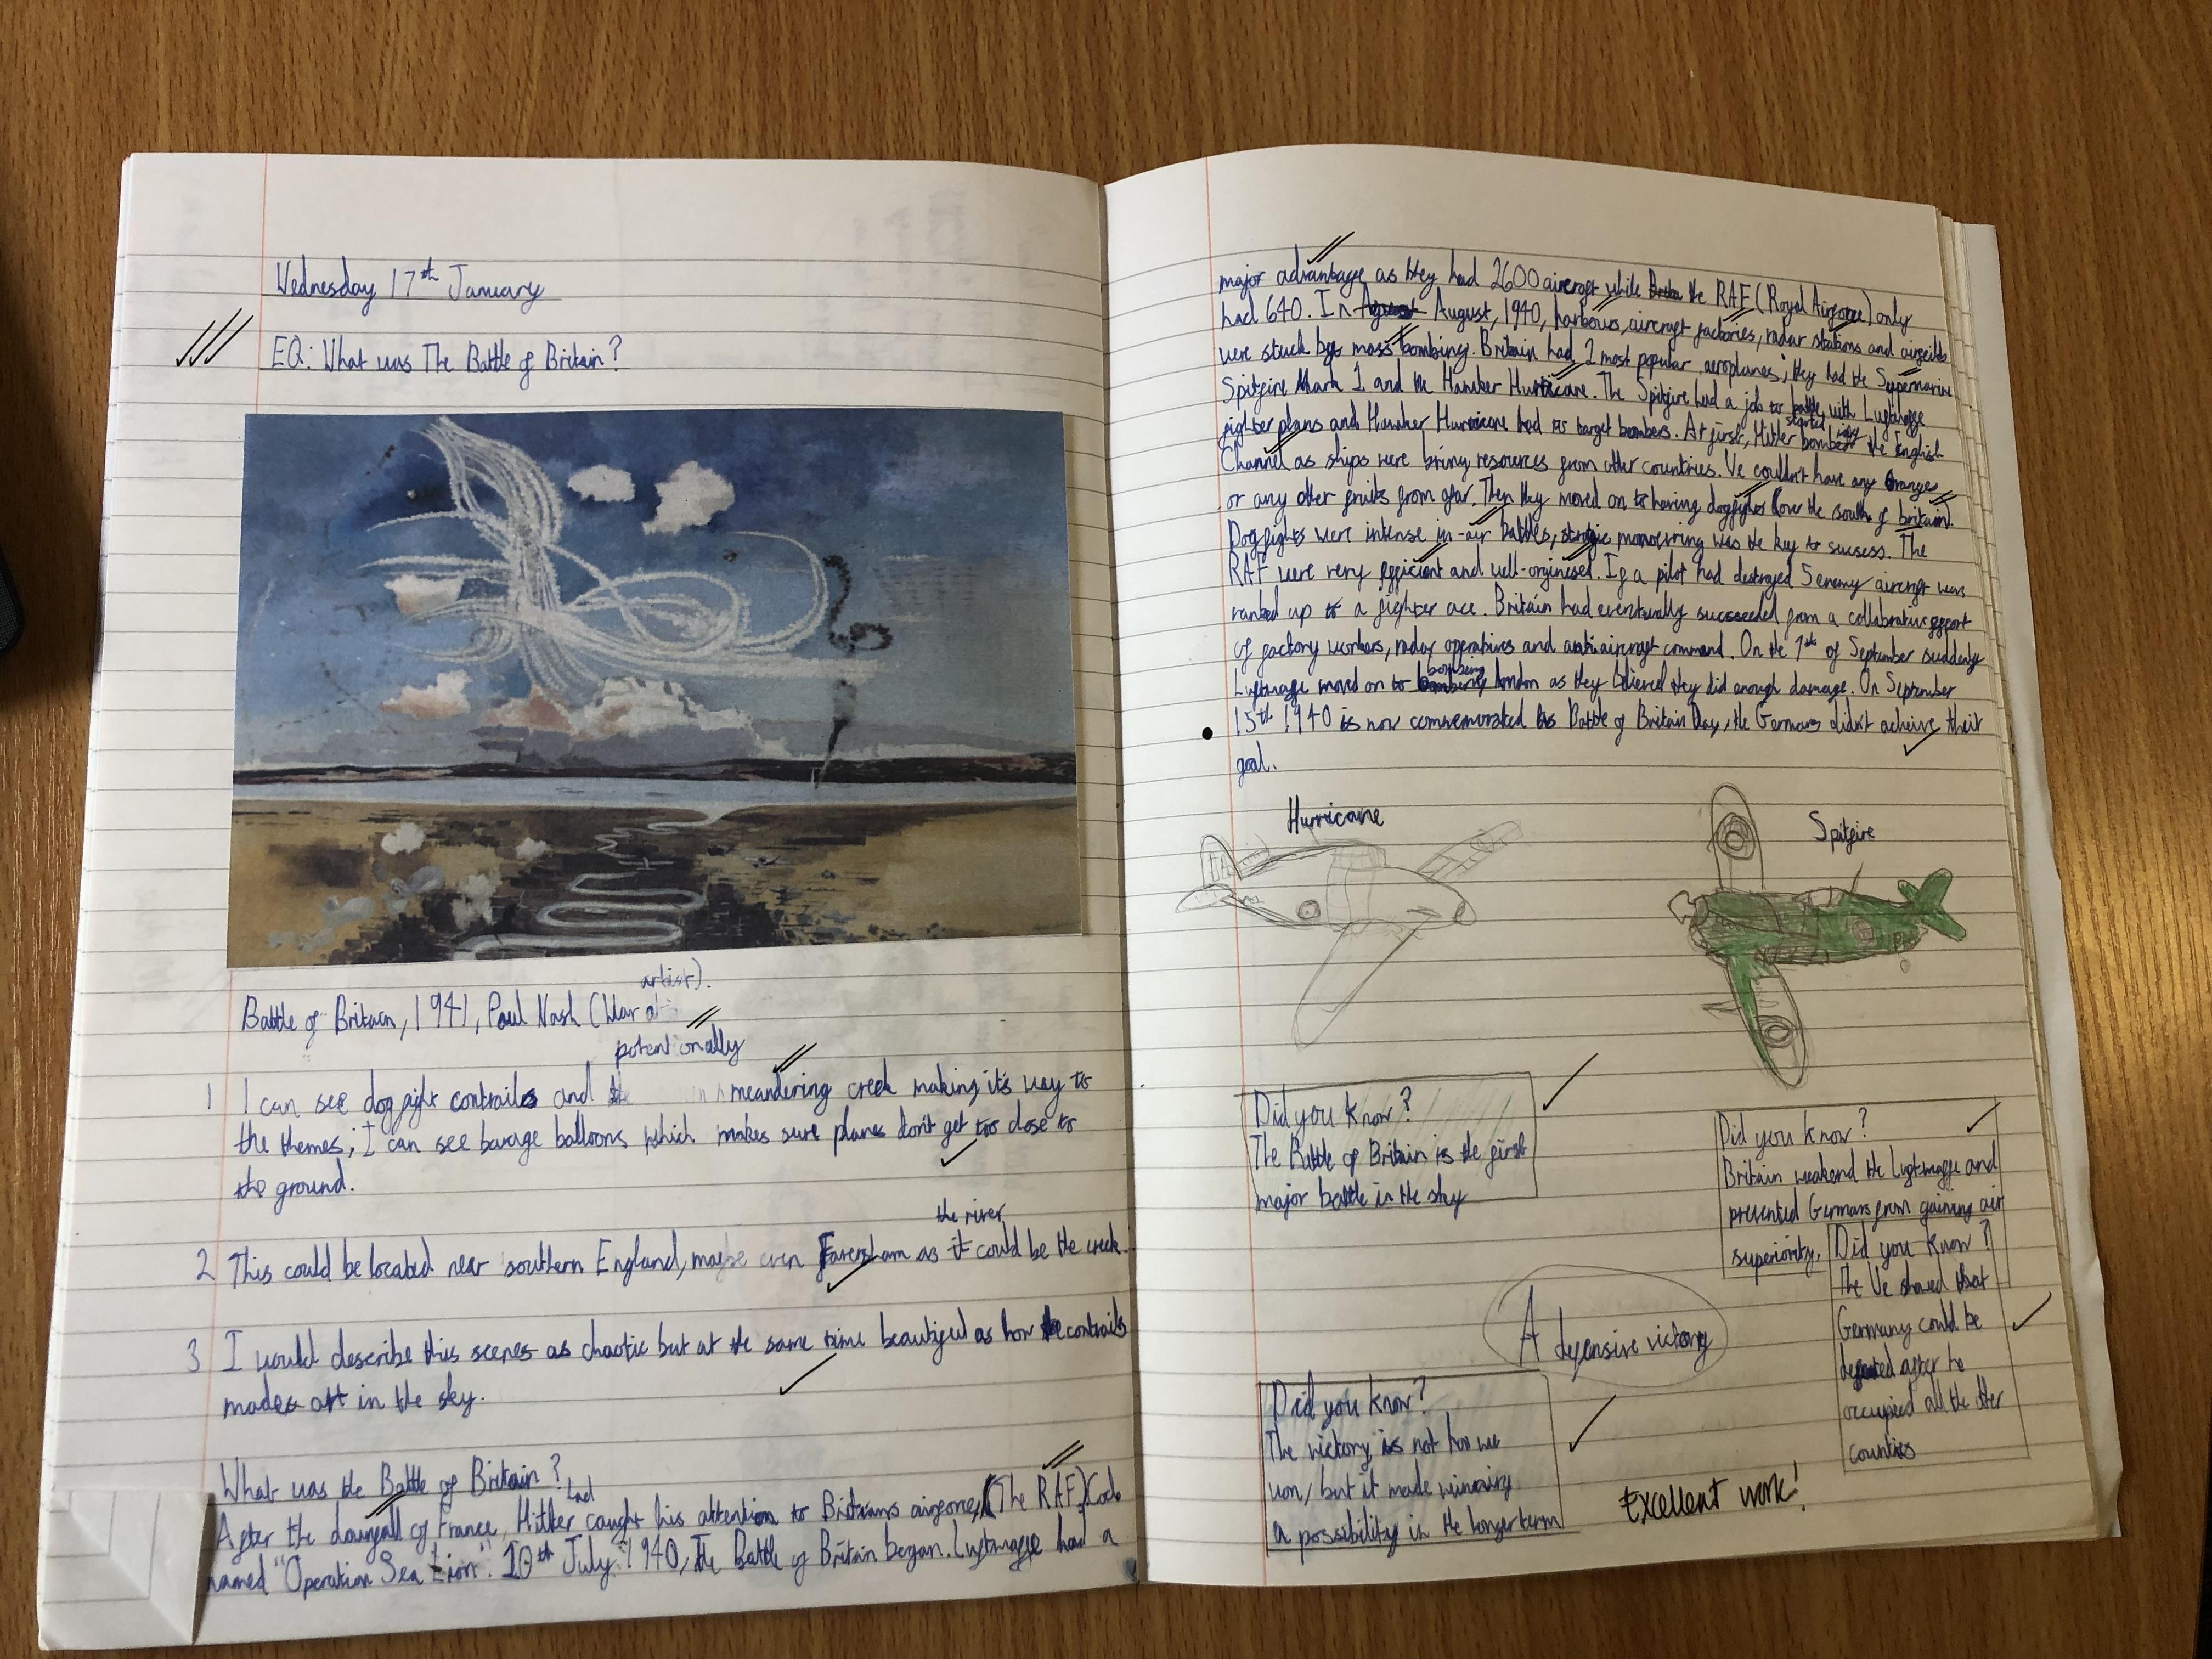 Wednesday 17th January
EQ: What was The Battle of Britain?
artist).
Battle of Britain, 1941, Paul Nash (War a
potentionally
1 I can see dog fight contrails and meandering creek making it's way to
the themes; I can see barage balloons which makes sure planes don't get too close to
the ground.
the river
2 This could be located near southern England, maybe even Faversham as it could be the creek.
3 I would describe this scenes as chaotic but at the same time beautiful as how the contrails
mades art in the sky.
What was the Battle of Britain?
had
After the downfall of France, Hitler caught his attention to Britians airforce, (The RAF) Code
named "Operation Sea Lion". 10th July 1940, The Battle of Britain began. Luftwaffe had a
major advantage as they had 2600 aircraft while the RAF (Royal Airforce) only
had 640. In August, 1940, harbours, aircraft factories, radar stations and airfields
were stuck by mass bombing. Britain had 2 most popular aeroplanes; they had the Supermarine
Spitfire Mark 1 and the Hawker Hurricane. The Spitfire had a job to battle with Luftwaffe
fighter plans and Hawker Hurricane had to target bombers. At first, Hitler started bombing the English
Channel as ships were bring resources from other countries. We couldn't have any Oranges
or any other fruits from afar. Then they moved on to having dogfights (over the south of britain).
Dogfights were intense in-air battles, manoevring was the key to success. The
RAF were very efficient and well-orginised. If a pilot had destroyed 5 enemy aircraft was
ranked up to a fighter ace. Britain had eventually succseeded from a collabrative effort
of factory workers, radar operatives and anti aircraft command. On the 7th of September suddenly
bombing
Luftwaffe moved on to london as they believed they did enough damage. On September
15th 1940 is now commemorated as Battle of Britain Day, the Germans didn't acheive their
goal.
Hurricane
Spitfire
Did you know?
The Battle of Britain is the first
major battle in the sky
Did you know?
Britain weakend the Luftwaffe and
prevented Germans from gaining air
superiority.
Did you know?
The We showed that
Germany could be
defeated after he
occupied all the other
counties
A defensive victory
Did you know?
The victory is not how we
won, but it made winning
a possibility in the longer term
Excellent work!